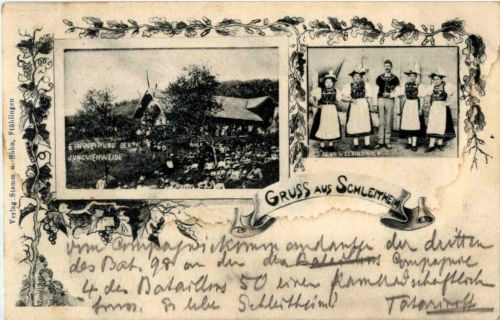 Verlag Stamm u. Sohn, Stühlingen
EINWEIHUNG DER
JUNGVIEHWEIDE
GRUSS AUS SCHLEITHEIM
vom Compagniekommandanten der dritten
des Bat. 98 an den der Bataillons Compagnie
4 des Bataillons 50 einen kameradschaftlichen
Gruss. Es lebe Schleitheim!